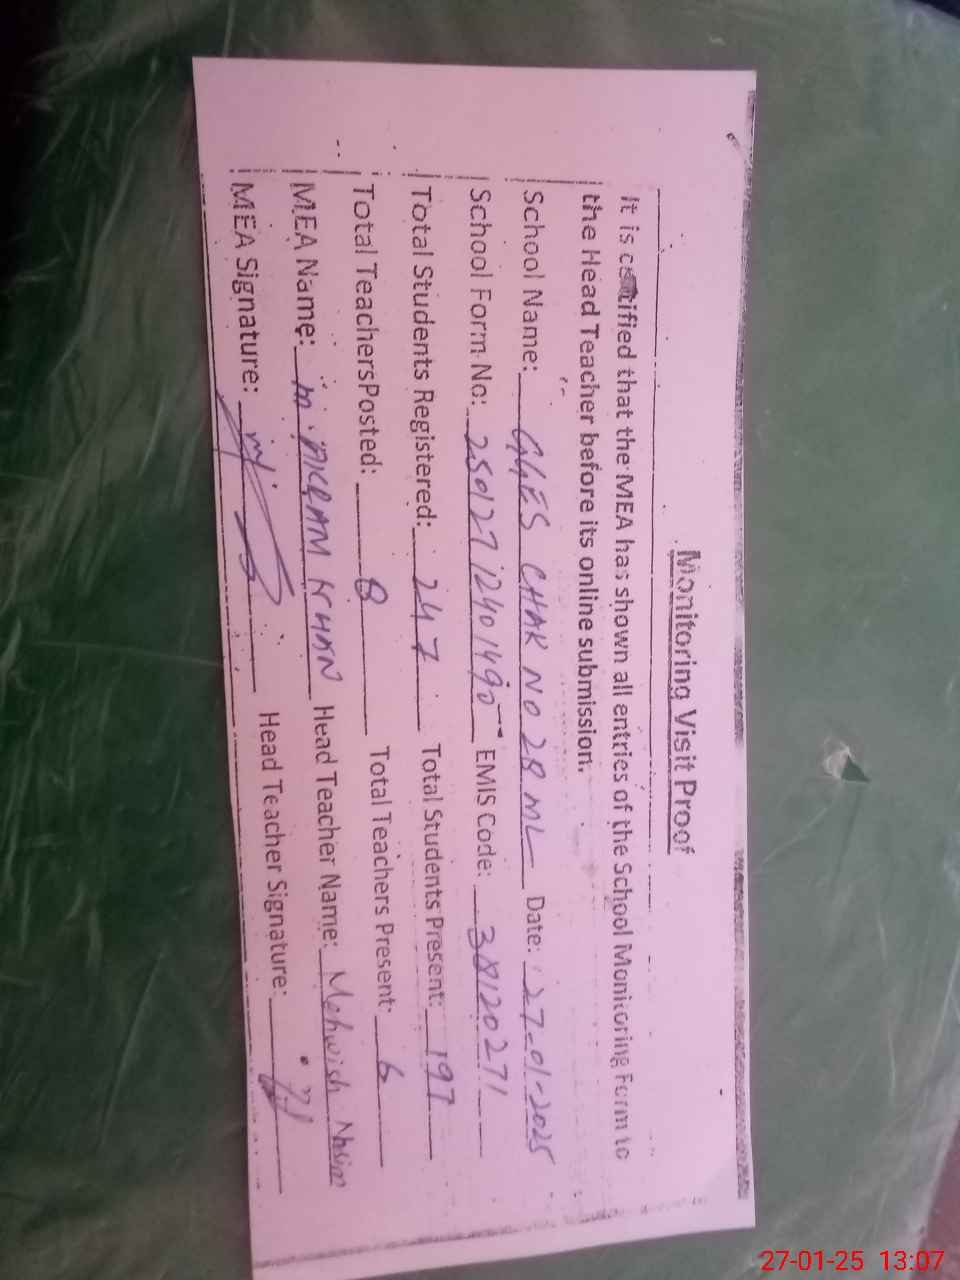 Monitoring Visit Proof
It is certified that the MEA has shown all entries of the School Monitoring Form to
the Head Teacher before its online submission.
School Name: GGES CHAK NO 28 ML Date: 27-01-2025
School Form No: 250127 12401490 EMIS Code: 38120271
Total Students Registered: 247 Total Students Present: 197
Total Teachers Posted: 8 Total Teachers Present: 6
MEA Name: M. AKRAM KHAN Head Teacher Name: Mehwish
MEA Signature: Head Teacher Signature:
27-01-25 13:07